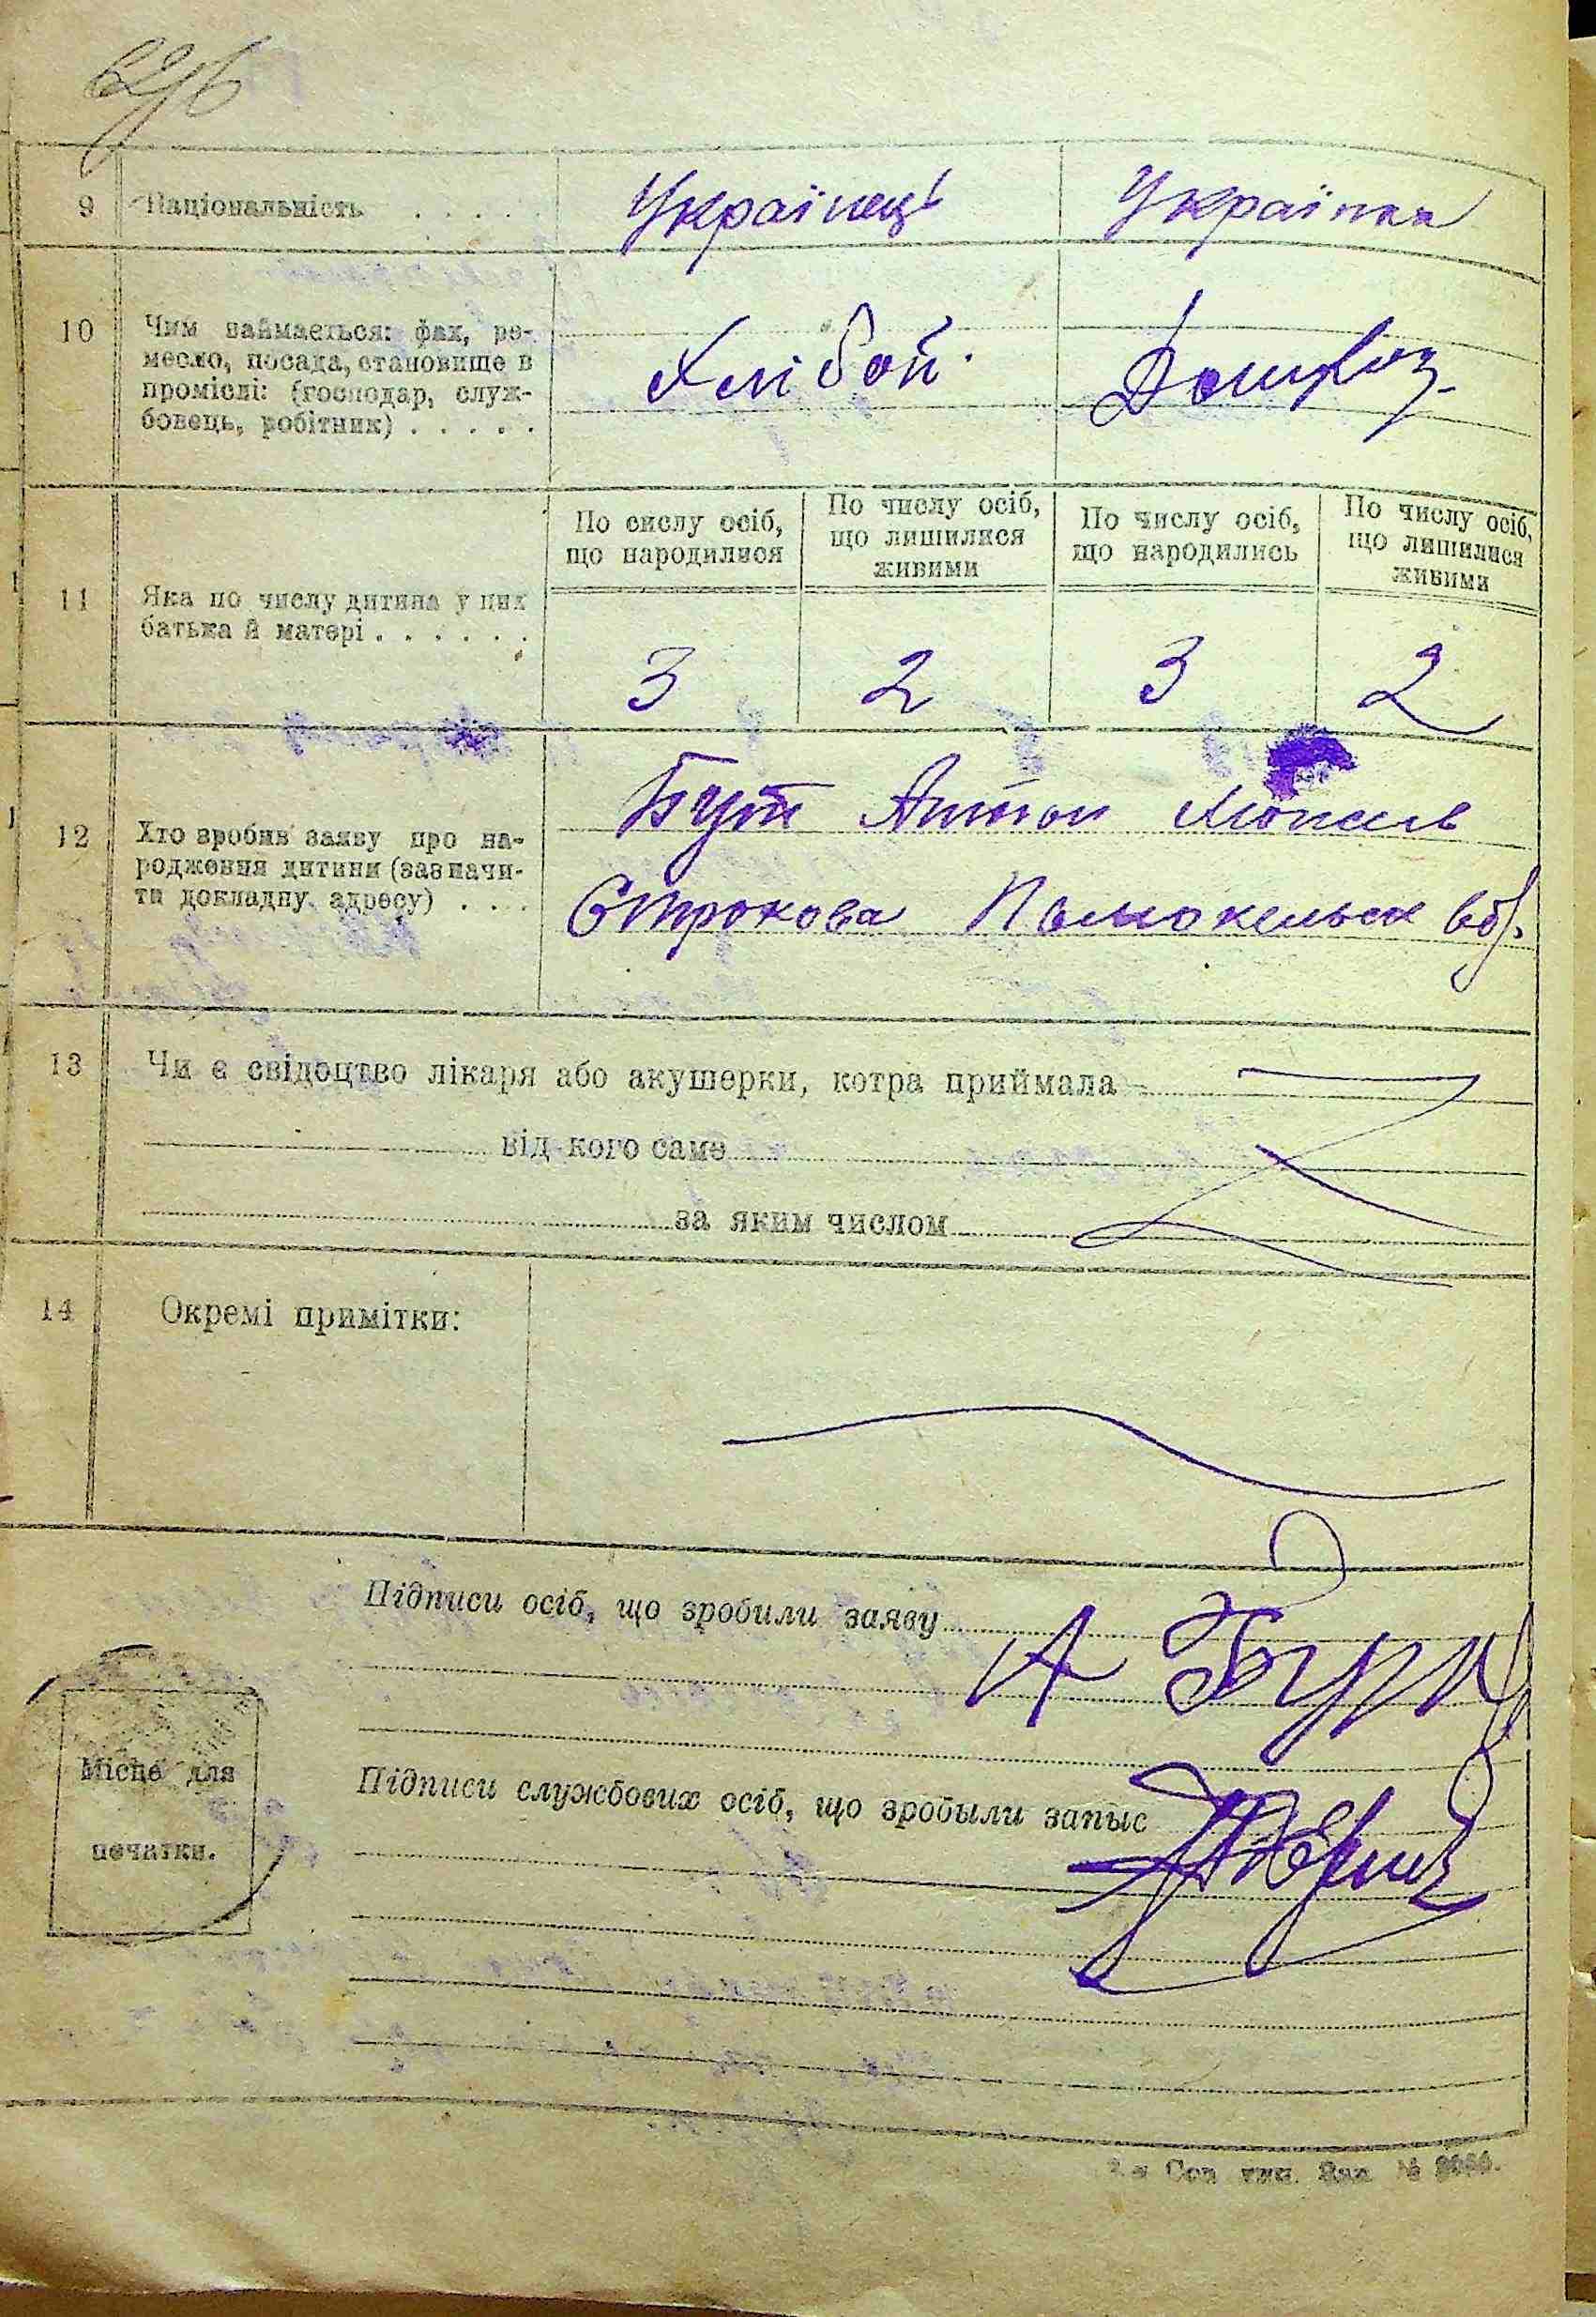 9 Національність . . . . . Українець Українка
10 Чим займається: фах, ре-
месло, посада, становище в
промислі: (господар, служ-
бовець, робітник) . . . . .
Хлібой. Домхоз.
По числу осіб, що народилися
По числу осіб, що лишилися живими
По числу осіб, що народились
По числу осіб, що лишилися живими
11 Яка по числу дитина у цих
батька й матері . . . . . .
3 2 3 2
12 Хто зробив заяву про на-
родження дитини (зазначи-
ти докладну адресу) . . .
Бут Антон
Строкова
13 Чи є свідоцтво лікаря або акушерки, котра приймала
від кого саме
за яким числом
14 Окремі примітки:
Підписи осіб, що зробили заяву
А Бут
Місце для
печатки.
Підписи службових осіб, що зробыли запыс